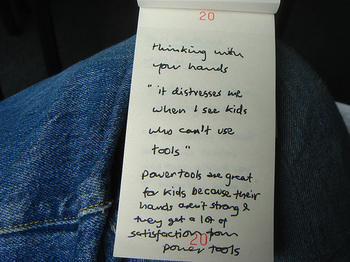 20
thinking with
your hands
"it distresses me
when I see kids
who can't use
tools"
power tools are great
for kids because their
hands aren't strong &
they get a lot of
satisfaction from
20
power tools